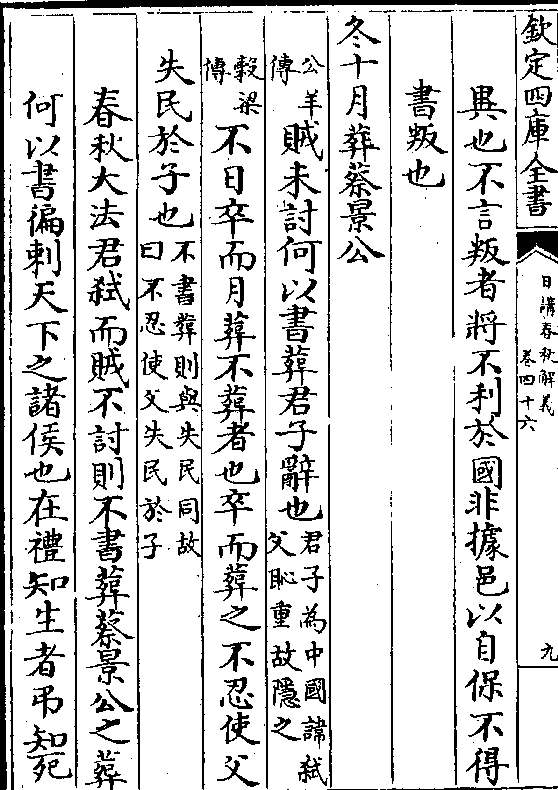 欽定四庫全書
日講春秋解義
卷四十六
九
異也不言叛者將不利於國非據邑以自保不得
書叛也
冬十月葬蔡景公
公羊
傳
賊未討何以書葬君子辭也
君子為中國諱弑
父恥重故隱之
穀梁
傳
不日卒而月葬不葬者也卒而葬之不忍使父
失民於子也
不書葬則與失民同故
曰不忍使父失民於子
春秋大法君弑而賊不討則不書葬蔡景公之葬
何以書徧刺天下之諸侯也在禮知生者弔知死